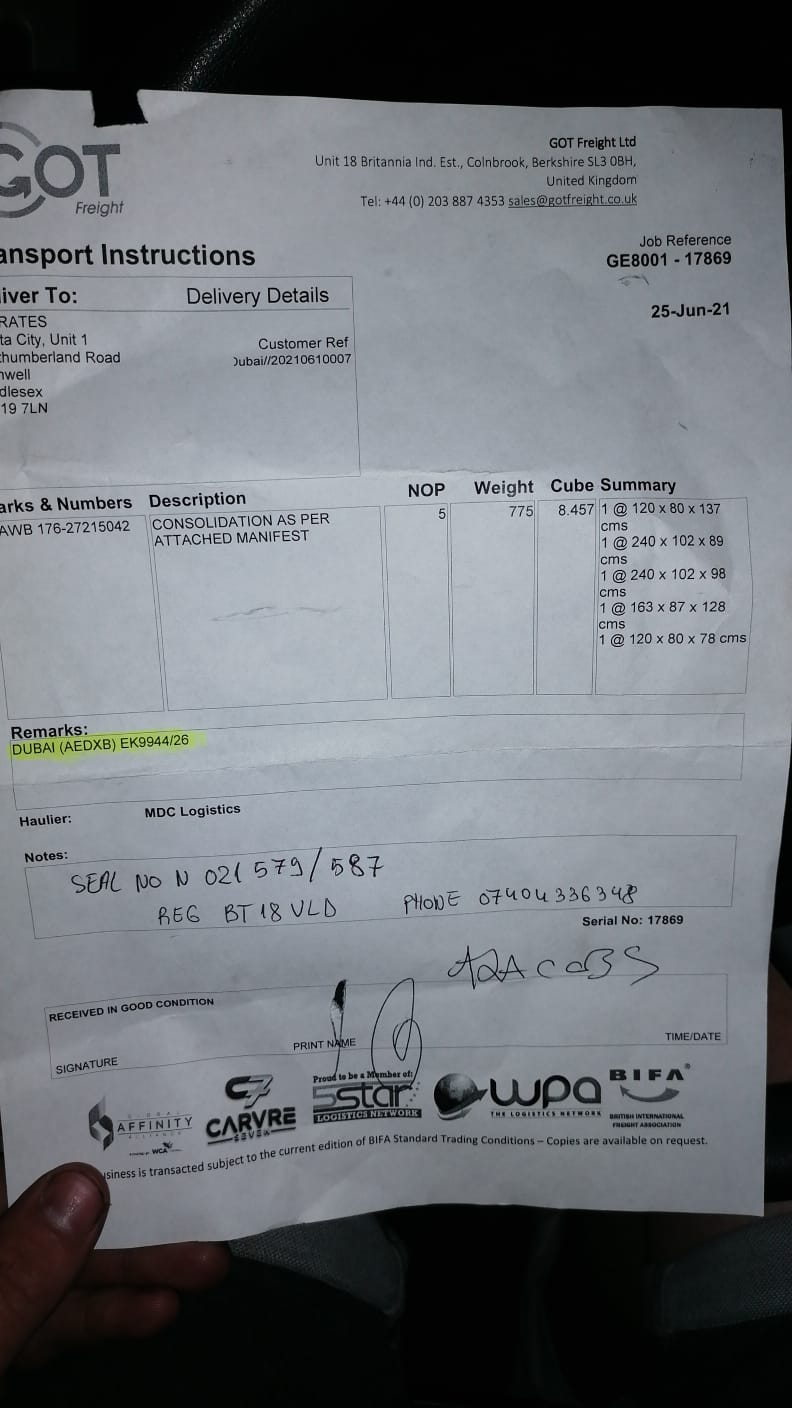 GOT
Freight
GOT Freight Ltd
Unit 18 Britannia Ind. Est., Colnbrook, Berkshire SL3 0BH,
United Kingdom
Tel: +44 (0) 203 887 4353 sales@gotfreight.co.uk
ansport Instructions
Job Reference
GE8001 - 17869
25-Jun-21
iver To: Delivery Details
RATES
ta City, Unit 1
thumberland Road
nwell
dlesex
19 7LN
Customer Ref
Dubai//20210610007
arks & Numbers Description NOP Weight Cube Summary
AWB 176-27215042 CONSOLIDATION AS PER 5 775 8.457 1 @ 120 x 80 x 137
ATTACHED MANIFEST cms
1 @ 240 x 102 x 89
cms
1 @ 240 x 102 x 98
cms
1 @ 163 x 87 x 128
cms
1 @ 120 x 80 x 78 cms
Remarks:
DUBAI (AEDXB) EK9944/26
Haulier: MDC Logistics
Notes:
SEAL NO N 021 579/587
REG BT18 VLD PHONE 07404336348
Serial No: 17869
RECEIVED IN GOOD CONDITION
SIGNATURE PRINT NAME TIME/DATE
GLOBAL
AFFINITY
ALLIANCE
WCA
C7
CARVRE
SEVEN
Proud to be a Member of:
5star
LOGISTICS NETWORK
wpa
THE LOGISTICS NETWORK
BIFA®
BRITISH INTERNATIONAL
FREIGHT ASSOCIATION
usiness is transacted subject to the current edition of BIFA Standard Trading Conditions – Copies are available on request.